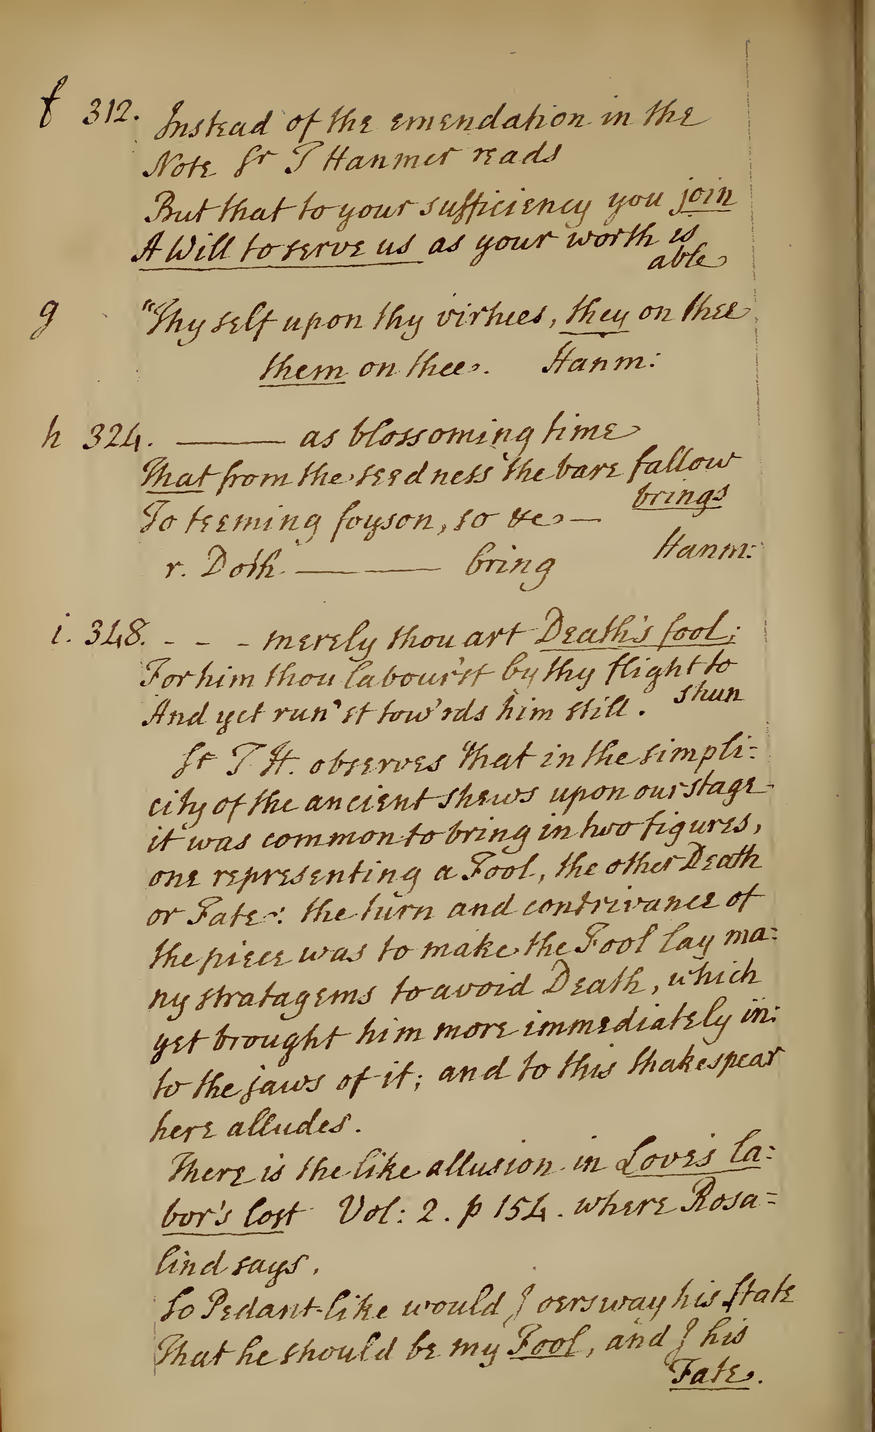 f 312. Instead of the emendation in the
Note Sr T Hanmer reads
But that to your sufficiency you join
A Will to serve us as your worth is
able
g "Thy self upon thy virtues, they on thee
them on thee. Hanm:
h 324. ——— as blossoming time
That from the seedness the bare fallow
brings
To teeming foyson, so &c —
Hanm:
r. Doth ——— bring
i. 348. - - - merely thou art Death's fool;
For him thou labour'st by thy flight to
shun
And yet run'st tow'rds him still.
Sr T H. observes that in the simpli:
city of the ancient shews upon our stage
it was common to bring in two figures,
one representing a Fool, the other Death
or Fate: the turn and contrivance of
the piece was to make the Fool lay ma:
ny stratagems to avoid Death, which
yet brought him more immediately in:
to the jaws of it; and to this Shakespear
here alludes.
There is the like allusion in Love's la:
bor's lost Vol: 2. p 154. where Rosa=
lind says,
So Pedant-like would I oersway his State
That he should be my Fool, and I his
Fate.